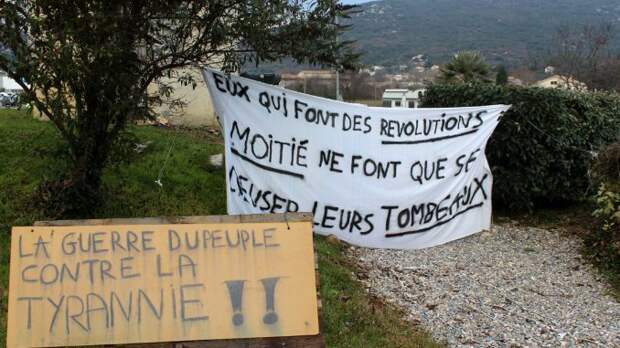 EUX QUI FONT DES REVOLUTIONS
MOITIÉ NE FONT QUE SE
CREUSER LEURS TOMBEAUX
LA GUERRE DU PEUPLE
CONTRE LA
TYRANNIE !!